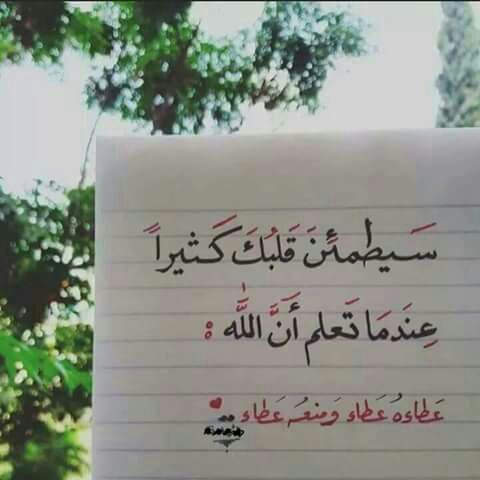 سَيطمئِنَ قَلبُكَ كَثيراً
عِندَمَا تَعلم أَنَّ اللَّٰه :
عَطاءهُ عَطاء وَمنعُه عَطاء